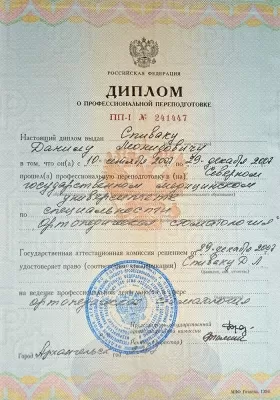 РОССИЙСКАЯ ФЕДЕРАЦИЯ
ДИПЛОМ
О ПРОФЕССИОНАЛЬНОЙ ПЕРЕПОДГОТОВКЕ
ПП-I № 241447
Настоящий диплом выдан Спиваку
Данилу Леонидовичу
в том, что он(а) с 10 сентября 2007 по 29 декабря 2007
прошел(а) профессиональную переподготовку в (на) Северном
государственном медицинском
университете
специальность
ортопедическая стоматология"
Государственная аттестационная комиссия решением 29 декабря 2007
удостоверяет право (соответствие квалификации) Спиваку Д Л
на ведение профессиональной деятельности в сфере
ортопедическая стоматология
Председатель государственной
аттестационной комиссии
Ректор (директор)
Город Архангельск